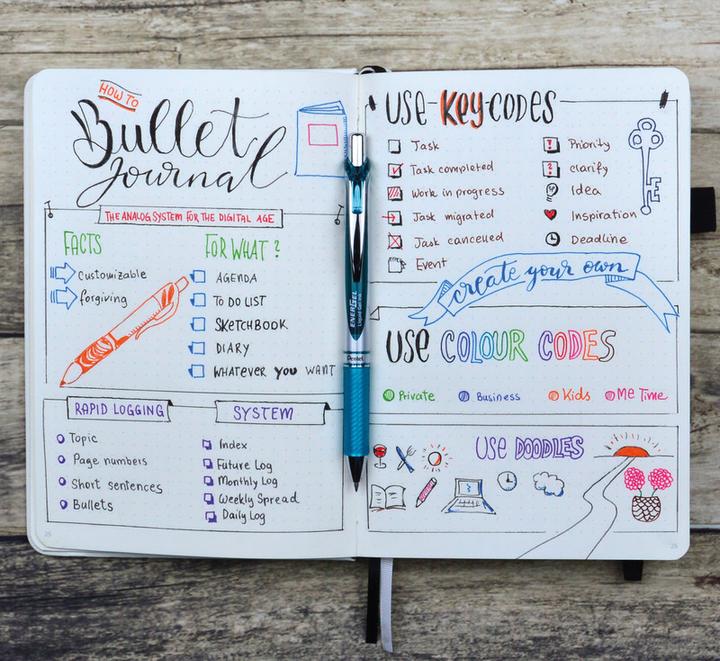 HOW TO
Bullet
Journal
THE ANALOG SYSTEM FOR THE DIGITAL AGE
FACTS
Customizable
forgiving
FOR WHAT?
AGENDA
TO DO LIST
SKETCHBOOK
DIARY
WHATEVER YOU WANT
RAPID LOGGING
Topic
Page numbers
Short sentences
Bullets
SYSTEM
Index
Future Log
Monthly Log
Weekly Spread
Daily Log
25
ENERGEL
Liquid Gel Ink
Pentel
USE KEY-CODES
Task
Task completed
Work in progress
Task migrated
Task cancelled
Event
Priority
clarify
Idea
Inspiration
Deadline
create your own
USE COLOUR CODES
Private
Business
Kids
Me Time
USE DOODLES
26